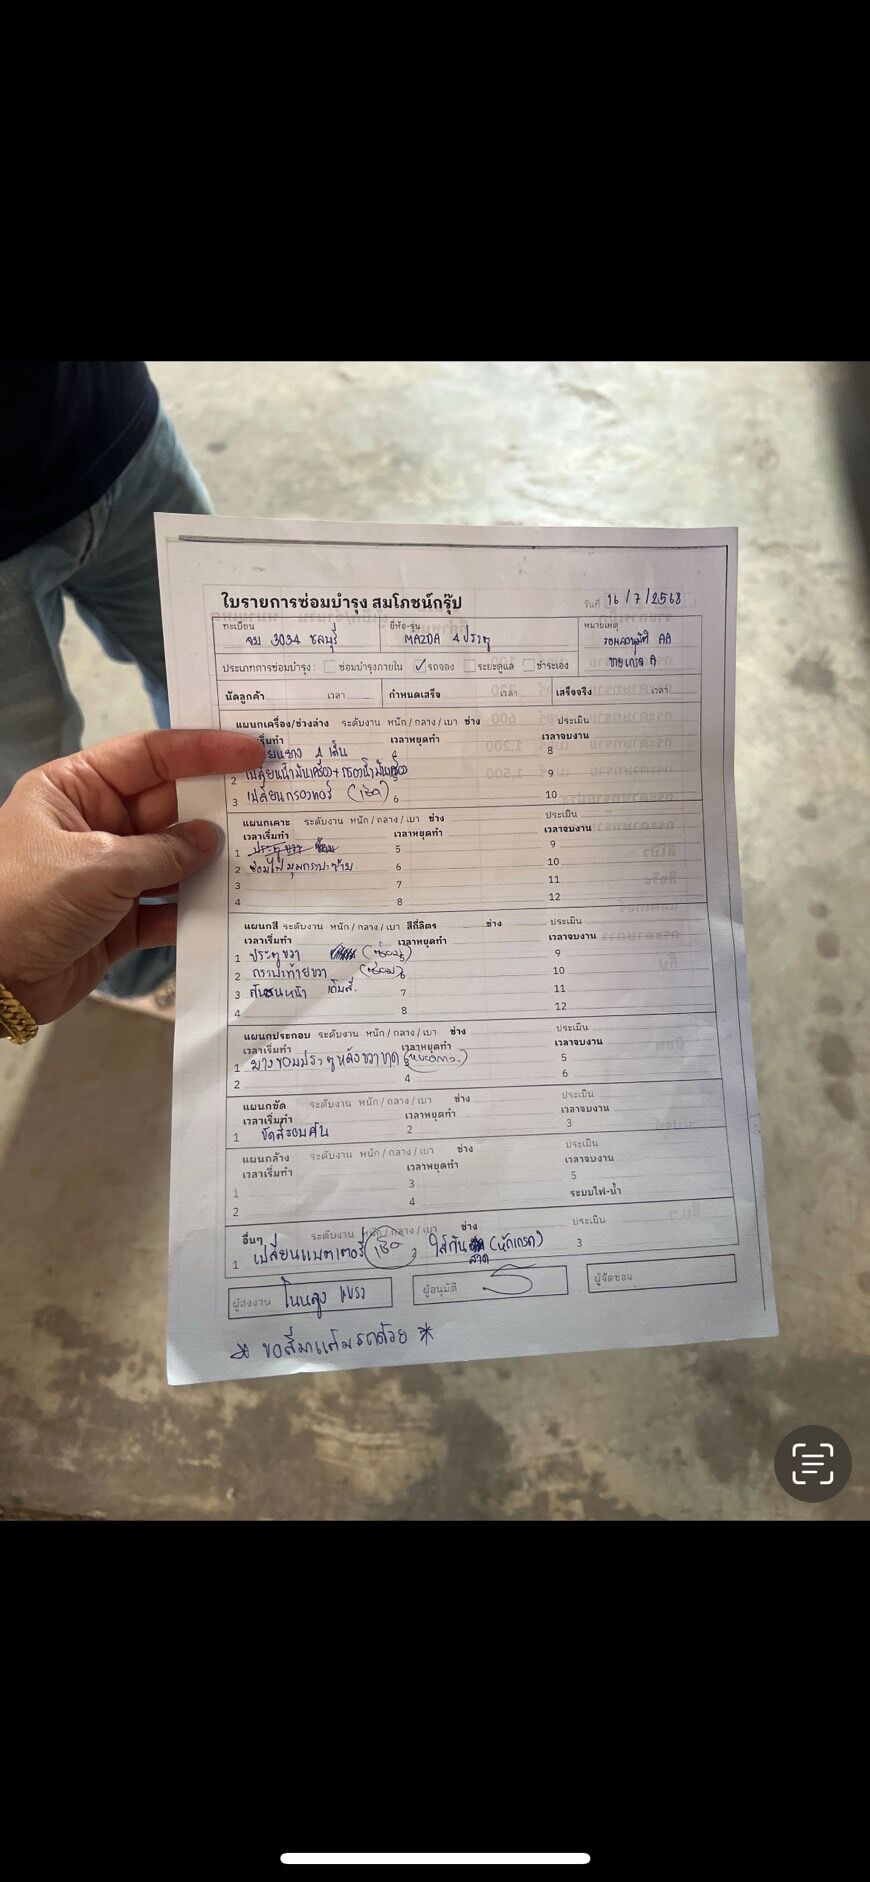 ใบรายการซ่อมบำรุง สมโภชน์กรุ๊ป
วันที่ 16/7/2568
ทะเบียน ยี่ห้อ-รุ่น หมายเหตุ
3034 ชลบุรี MAZDA 4 ประตู รอผลอนุมัติ AA
ขายเกรด A
ประเภทการซ่อมบำรุง: ซ่อมบำรุงภายใน ✓ รถจอง ระยะดูแล ชำระเอง
นัดลูกค้า เวลา กำหนดเสร็จ เวลา เสร็จจริง เวลา
แผนกเครื่อง/ช่วงล่าง ระดับงาน หนัก / กลาง / เบา ช่าง ประเมิน
เริ่มทำ เวลาหยุดทำ เวลาจบงาน
ยนยาง 4 เส้น 4 8
2 เปลี่ยนน้ำมันเครื่อง+กรองน้ำมันเครื่อง 9
3 เปลี่ยนกรองแอร์ (เช็ค) 6 10
แผนกเคาะ ระดับงาน หนัก / กลาง / เบา ช่าง ประเมิน
เวลาเริ่มทำ เวลาหยุดทำ เวลาจบงาน
1 ประตูขวา ซ่อม 5 9
2 ซ่อมไฟมุมกราบซ้าย 6 10
3 7 11
4 8 12
แผนกสี ระดับงาน หนัก / กลาง / เบา สีกี่ลิตร ช่าง ประเมิน
เวลาเริ่มทำ เวลาหยุดทำ เวลาจบงาน
1 ประตูขวา (ซ่อม) 9
2 กราบท้ายขวา (ซ่อม) 6 10
3 กันชนหน้า เก็บสี. 7 11
4 8 12
แผนกประกอบ ระดับงาน หนัก / กลาง / เบา ช่าง ประเมิน
เวลาเริ่มทำ เวลาหยุดทำ เวลาจบงาน
1 ยางขอบประตูหลังขวาขาด 5
2 4 6
แผนกขัด ระดับงาน หนัก / กลาง / เบา ช่าง ประเมิน
เวลาเริ่มทำ เวลาหยุดทำ เวลาจบงาน
1 ขัดสีรอบคัน 2 3
แผนกล้าง ระดับงาน หนัก / กลาง / เบา ช่าง ประเมิน
เวลาเริ่มทำ เวลาหยุดทำ เวลาจบงาน
1 3 5
2 4 ระบบไฟ-น้ำ
อื่นๆ ระดับงาน หนัก / กลาง / เบา ช่าง ประเมิน
1 เปลี่ยนแบตเตอรี่ (เช็ค) 2 ใส่กันสาด (นักเกรด) 3
ผู้สั่งงาน ผู้อนุมัติ ผู้จัดชอบ
* ขอสีมาแต้มรถด้วย *